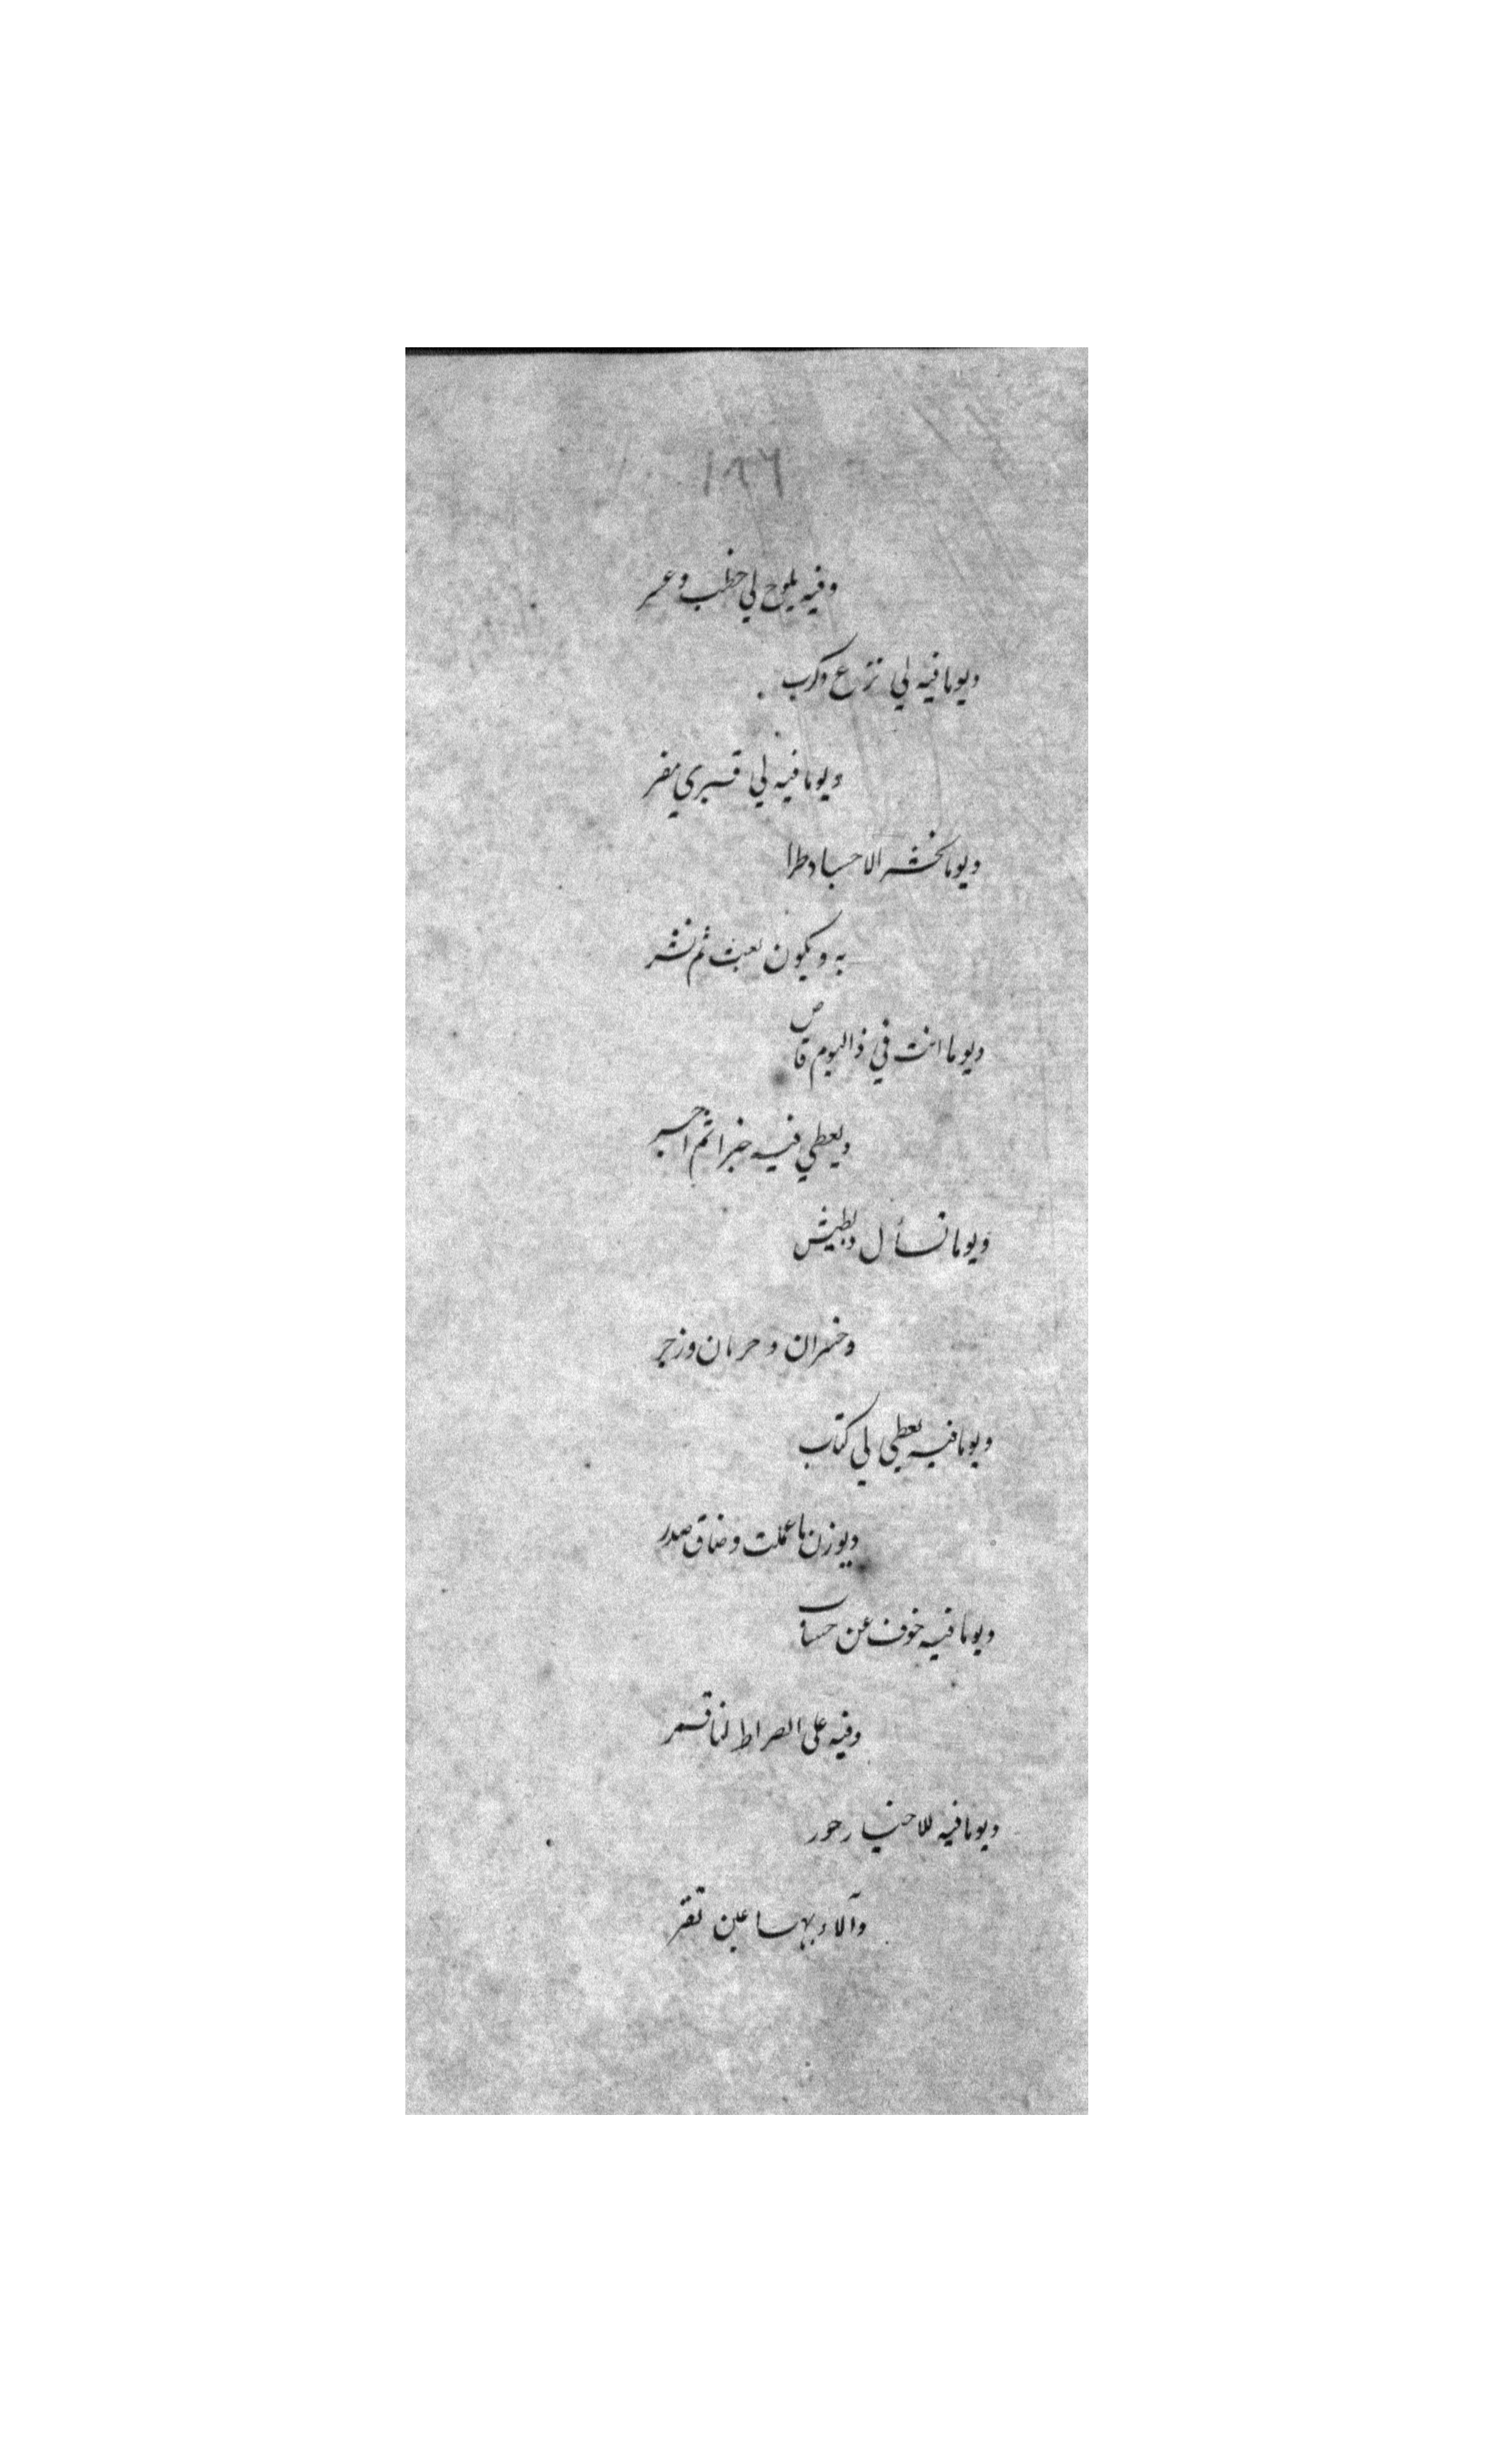 ١٨٦
وفيه يلوح لي خطب وعسر
ويوما فيه لي نزع وكرب
ويوما فيه لي قبري مفر
ويوما تحشر الاجساد طرا
به ويكون بعث ثم نشر
ويوما انت في ذا اليوم قاص
ويعطي فيه خيرا ثم اجر
ويوما نسأل وبطيش
وخسران وحرمان وزجر
ويوما فيه يعطي لي كتاب
ويوزن ما عملت وضاق صدر
ويوما فيه خوف عن حساب
وفيه على الصراط لنا ممر
ويوما فيه للاخيار حور
وآلاء بها عين تقر